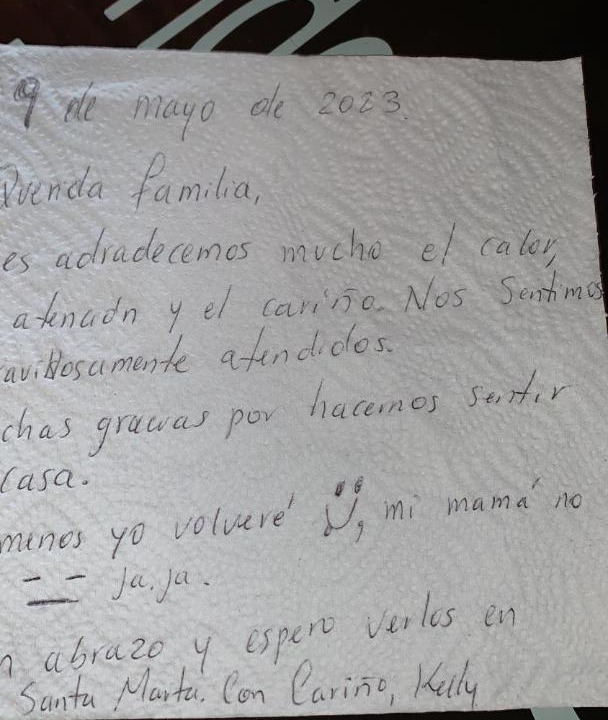 9 de mayo de 2023.
Querida familia,
es adradecemos mucho el calor,
atención y el cariño. Nos Sentimos
avillosamente atendidos.
chas gracias por hacernos sentir
casa.
menos yo volveré , mi mamá no
ja, ja.
n abrazo y espero verlos en
Santa Marta. Con Cariño, Kelly